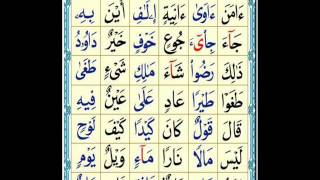 ءَامَنَ ءَاوٰى ءَانِيَةٍ اٖلٰفِ أَيْنَ بِهٖ
جَآءَ جِآىْءَ جُوْعٍ خَوْفٍ خَيْرٌ دَاوٗدُ
ذٰلِكَ رَضُوْا شَآءَ مٰلِكِ شَىْءٍ طَغٰى
طَغَوْا طَيْرًا عَادٍ عَلٰى عَيْنٌ فِيْهِ
قَالَ قَوْلٌ كَانَ كَيْدًا كَيْفَ لَوْحٍ
لَيْسَ مَالًا نَارًا مَآءٍ وَيْلٌ يَوْمٍ